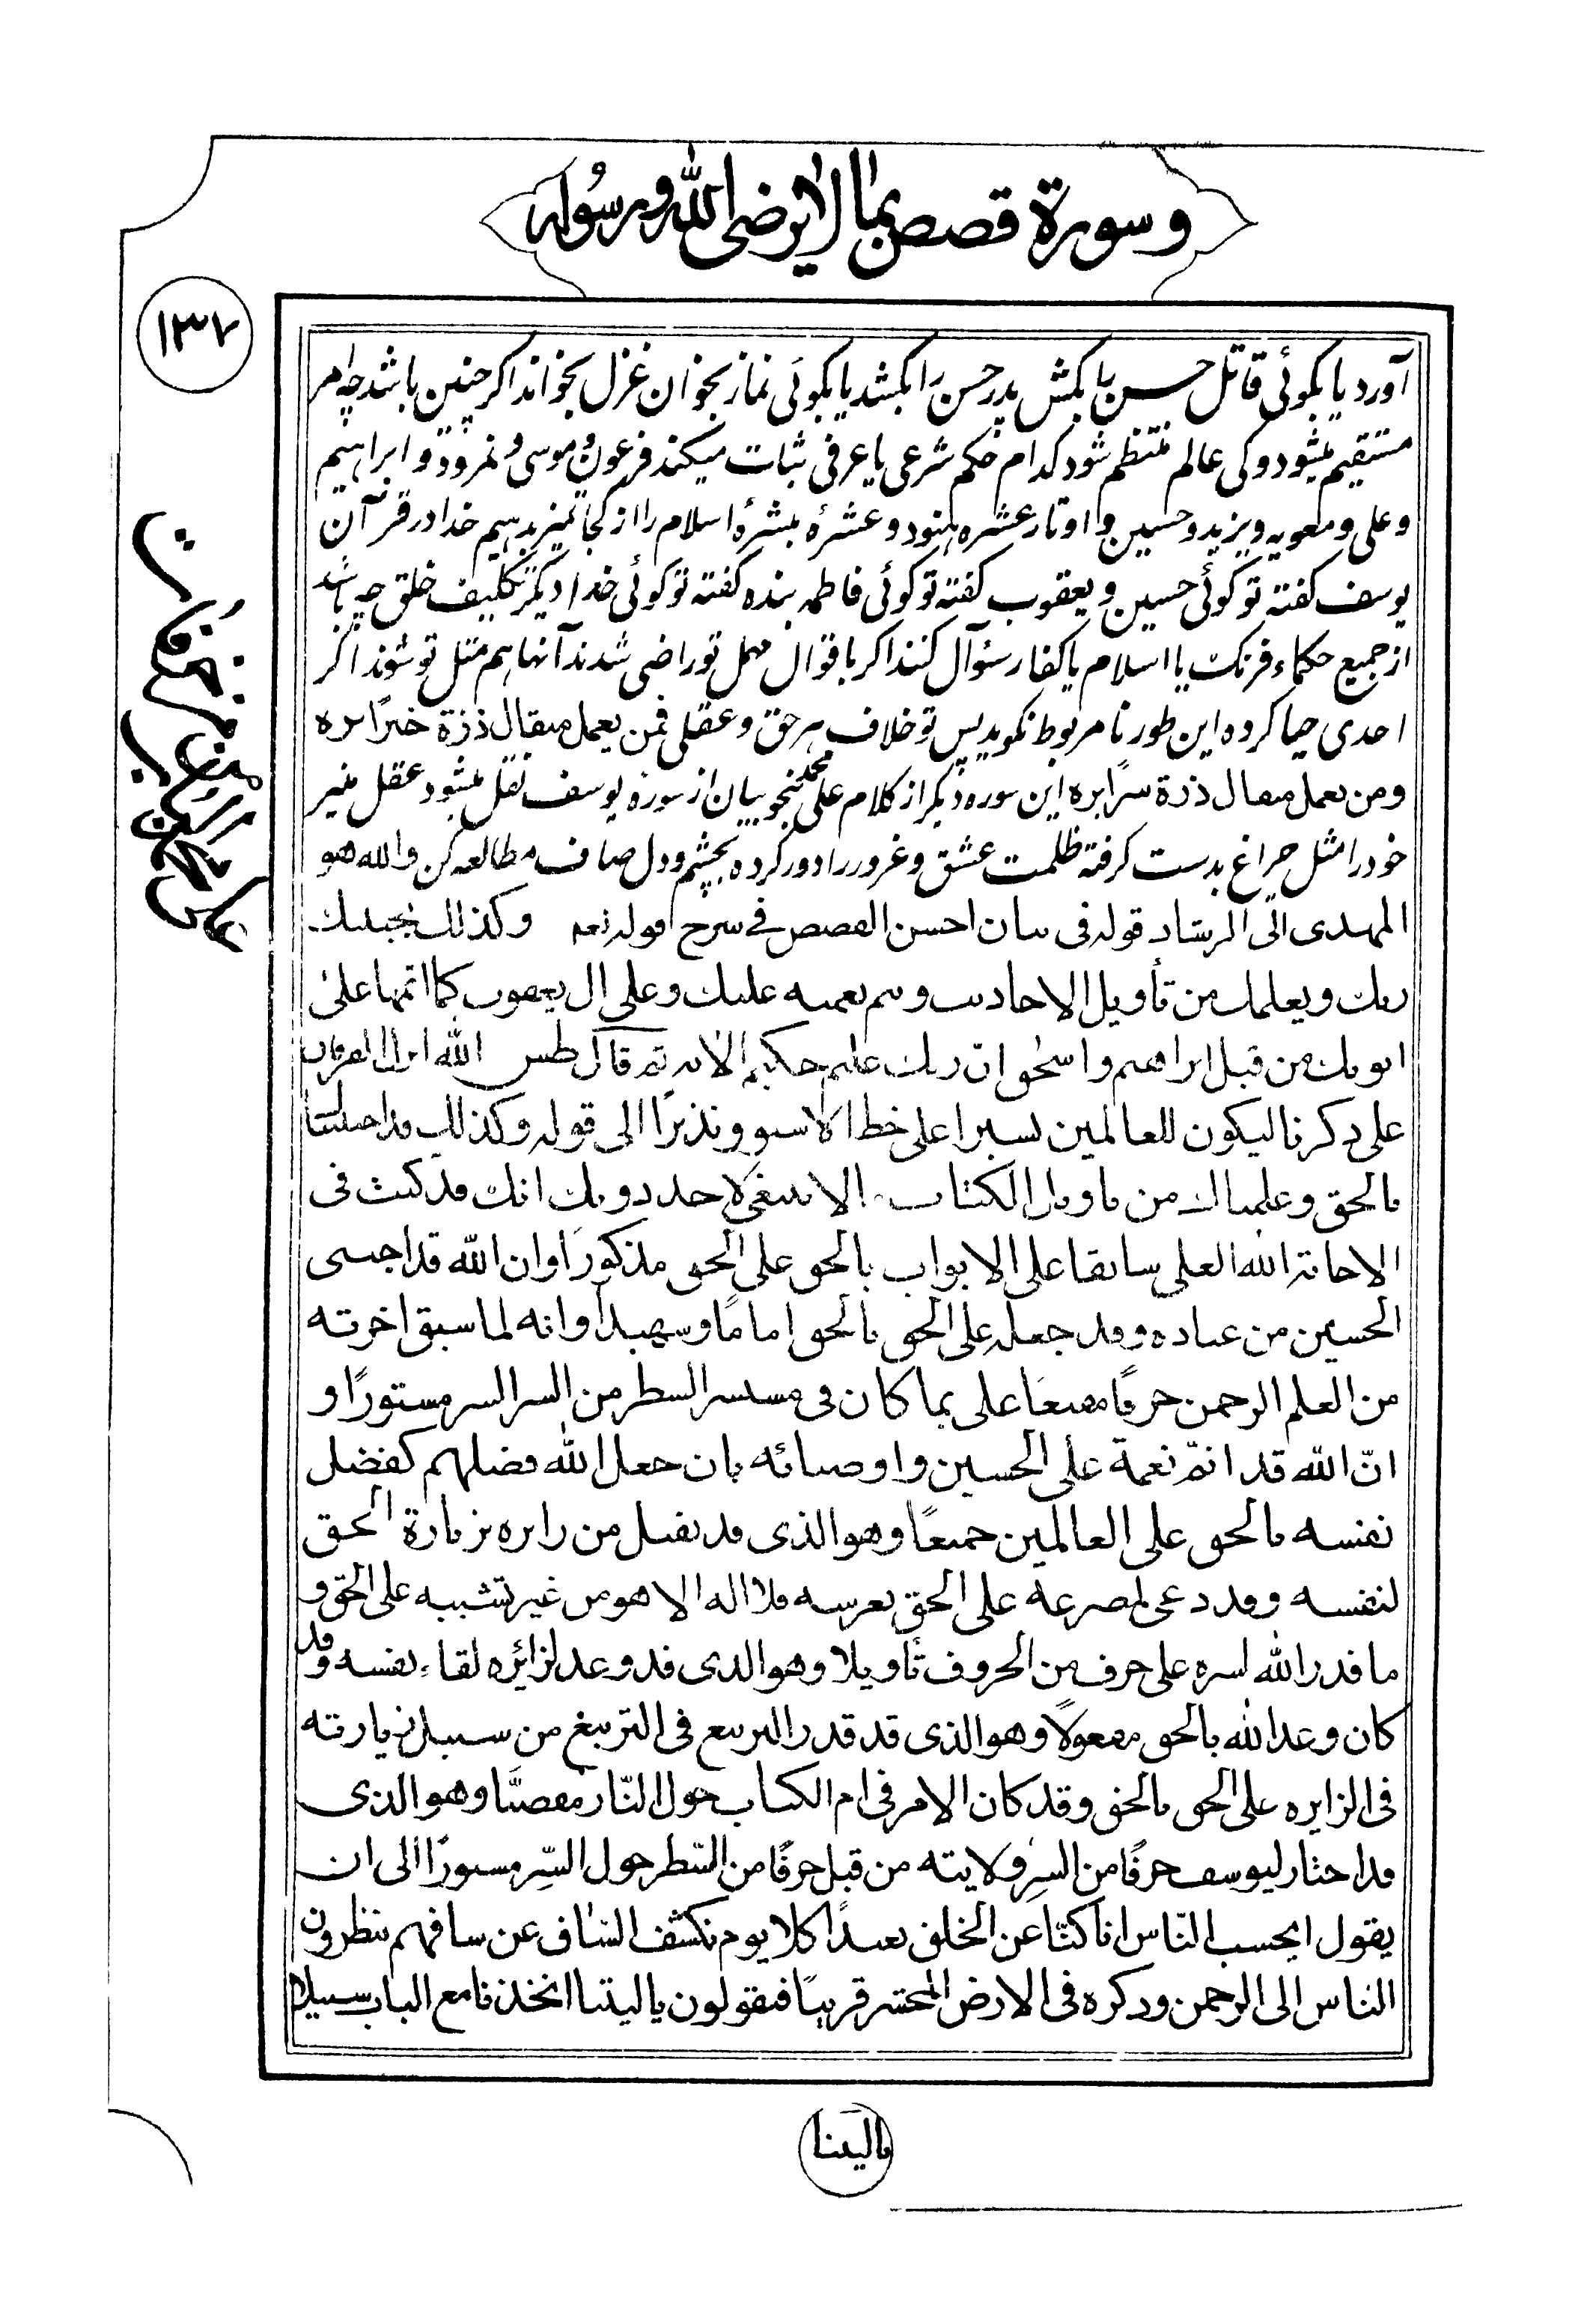 و سورة قصص بما لا يرضى الله ورسوله
١٣٧
آورد یا بکوئی قاتل حسن را بکش پدر حسن را بکشد یا بکوئی نماز بخوان غزل بخواند اکر چنین باشد چه امر
مستقیم میشود و کی عالم منتظم شود کدام حکم شرعی یا عرفی ثبات میکند فرعون و موسی و نمرود و ابراهیم
و علی و معویه و یزید و حسین و اوتار عشره هنود و عشرۀ مبشرۀ اسلام را از کجا تمیز بدهیم خدا در قرآن
یوسف کفته تو کوئی حسین و یعقوب کفته تو کوئی فاطمه بنده کفته تو کوئی خدا دیکر تکلیف خلق چه باشد
از جمیع حکماء فرنک یا اسلام یا کفار سئوآل کنند اکر باقوال مهمل تو راضی شدند آنها هم مثل تو شوند اکر
احدی حیا کرده این طور نامربوط نکوید پس تو خلاف هر حق و عقلی فمن یعمل مثقال ذرة خیرًا یره
ومن یعمل مثقال ذرة شرًا یره این سوره دیکر از کلام علی محمد بنحو بیان از سوره یوسف نقل میشود عقل منیر
خود را مثل چراغ بدست کرفته ظلمت عشق و غرور را دور کرده بچشم و دل صاف مطالعه کن والله هو
المهدی الی الرشاد قوله فی بیان احسن القصص فی شرح قوله تعه وکذلک یجتبیک
ربک ویعلمک من تأویل الاحادیث ویتم نعمته علیک وعلی ال یعقوب کما اتمها علی
ابویک من قبل ابراهیم واسحق ان ربک علیم حکیم الایه ثم قال طس الله انزل الفرقان
علی ذکرنا لیکون للعالمین بشیرا علی خط الاستوو نذیرًا الی قوله وکذلک قد اصلینا
بالحق وعلمناک من تاویل الکتاب الا ینبغی لاحد دونک انک قد کنت فی
الاجابة الله العلی سابقا علی الابواب بالحق علی الحق مذکورًا وان الله قد اجتبی
الحسین من عباده وقد جعله علی الحق بالحق امامًا وشهیدًا وانه لما سبق اخوته
من العلم الرحمن حرفًا علی بما کان فی مستسر السطر من السر السر مستورًا و
انّ الله قد اتمّ نعمة علی الحسین واوصیائه بان جعل الله فضلهم کفضل
نفسه بالحق علی العالمین جمیعًا وهو الذی قد تقبل من زایره بزیارة الحق
لنفسه وقد دعی لمصرعه علی الحق بعرشه فلا اله الا هو من غیر تشبیه علی الحق و
ما قدر الله لسره علی حرف من الحروف تأویلا وهو الذی قد وعد لزائره لقاء نفسه وقد
کان وعد الله بالحق مفعولًا وهو الذی قد قدر التربیع فی التربیع من سبیل زیارته
فی الزایره علی الحق بالحق وقد کان الامر فی ام الکتاب حول النّار مقضیًّا وهو الذی
قد اختار لیوسف حرفًا من السرّ ولایته من قبل حرفًا من السّطر حول السّر مستورًا الی ان
یقول ایحسب النّاس انا کنّا عن الخلق بعیدًا کلا یوم نکشف السّاف عن ساقهم ینظرون
الناس الی الرحمن وذکره فی الارض المحشر قریبًا فیقولون یا لیتنا اتخذنا مع الباب سبیلا
یالیتنا